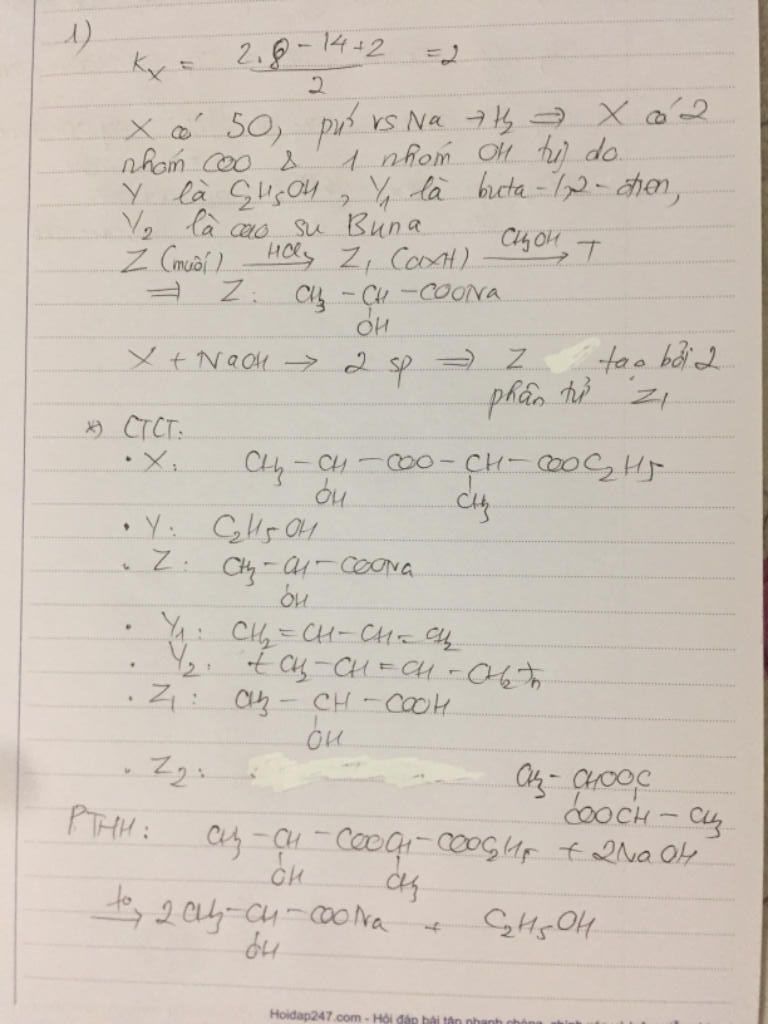 1)
Kx = 2.8 - 14 + 2 / 2 = 2
X có 5O, pứ vs Na → H2 ⇒ X có 2
nhóm COO & 1 nhóm OH tự do.
Y là C2H5OH, Y1 là buta-1,2-đien,
Y2 là cao su Buna
Z (muối) HCl→ Z1 (axH) CH3OH→ T
⇒ Z: CH3 - CH - COONa
OH
X + NaOH → 2 sp ⇒ Z tạo bởi 2
phân tử Z1
*) CTCT:
• X: CH3 - CH - COO - CH - COOC2H5
OH CH3
• Y: C2H5OH
• Z: CH3 - CH - COONa
OH
• Y1: CH2 = CH - CH = CH2
• Y2: (CH2 - CH = CH - CH2)n
• Z1: CH3 - CH - COOH
OH
• Z2: CH3 - CHOOC
COOCH - CH3
PTHH: CH3 - CH - COOCH - COOC2H5 + 2NaOH
OH CH3
to→ 2CH3 - CH - COONa + C2H5OH
OH
Hoidap247.com - Hỏi đáp bài tập nhanh chóng, chính xác